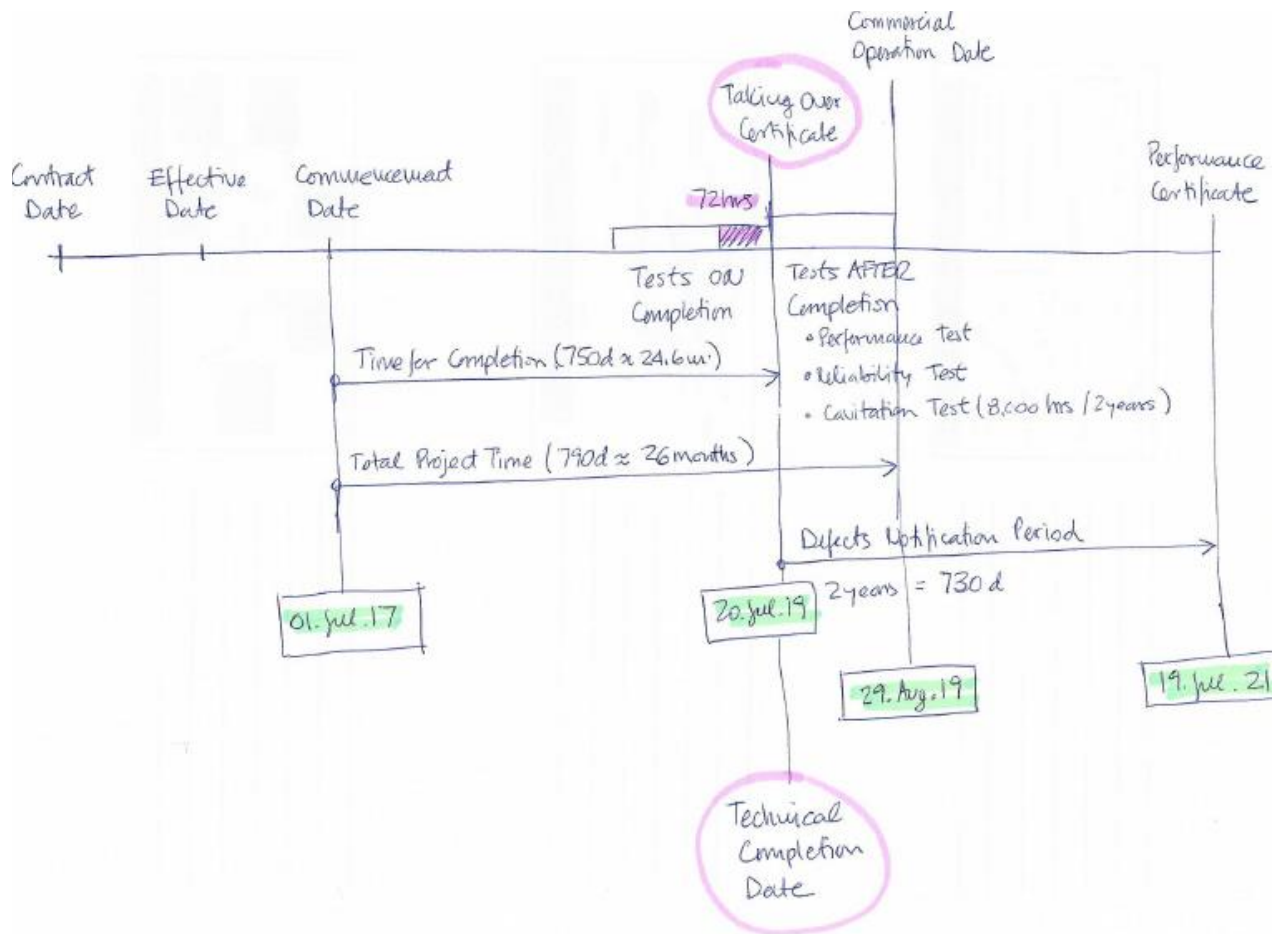 Commercial
Operation Date
Taking Over
Certificate
Performance
Certificate
Contract
Date
Effective
Date
Commencement
Date
72hrs
Tests on
Completion
Tests AFTER
Completion
• Performance Test
• Reliability Test
• Cavitation Test (8,000 hrs / 2years)
Time for Completion (750d ≈ 24.6m.)
Total Project Time (790d ≈ 26 months)
Defects Notification Period
2 years = 730 d
01. Jul. 17
20. Jul. 19
29. Aug. 19
19. Jul. 21
Technical
Completion
Date